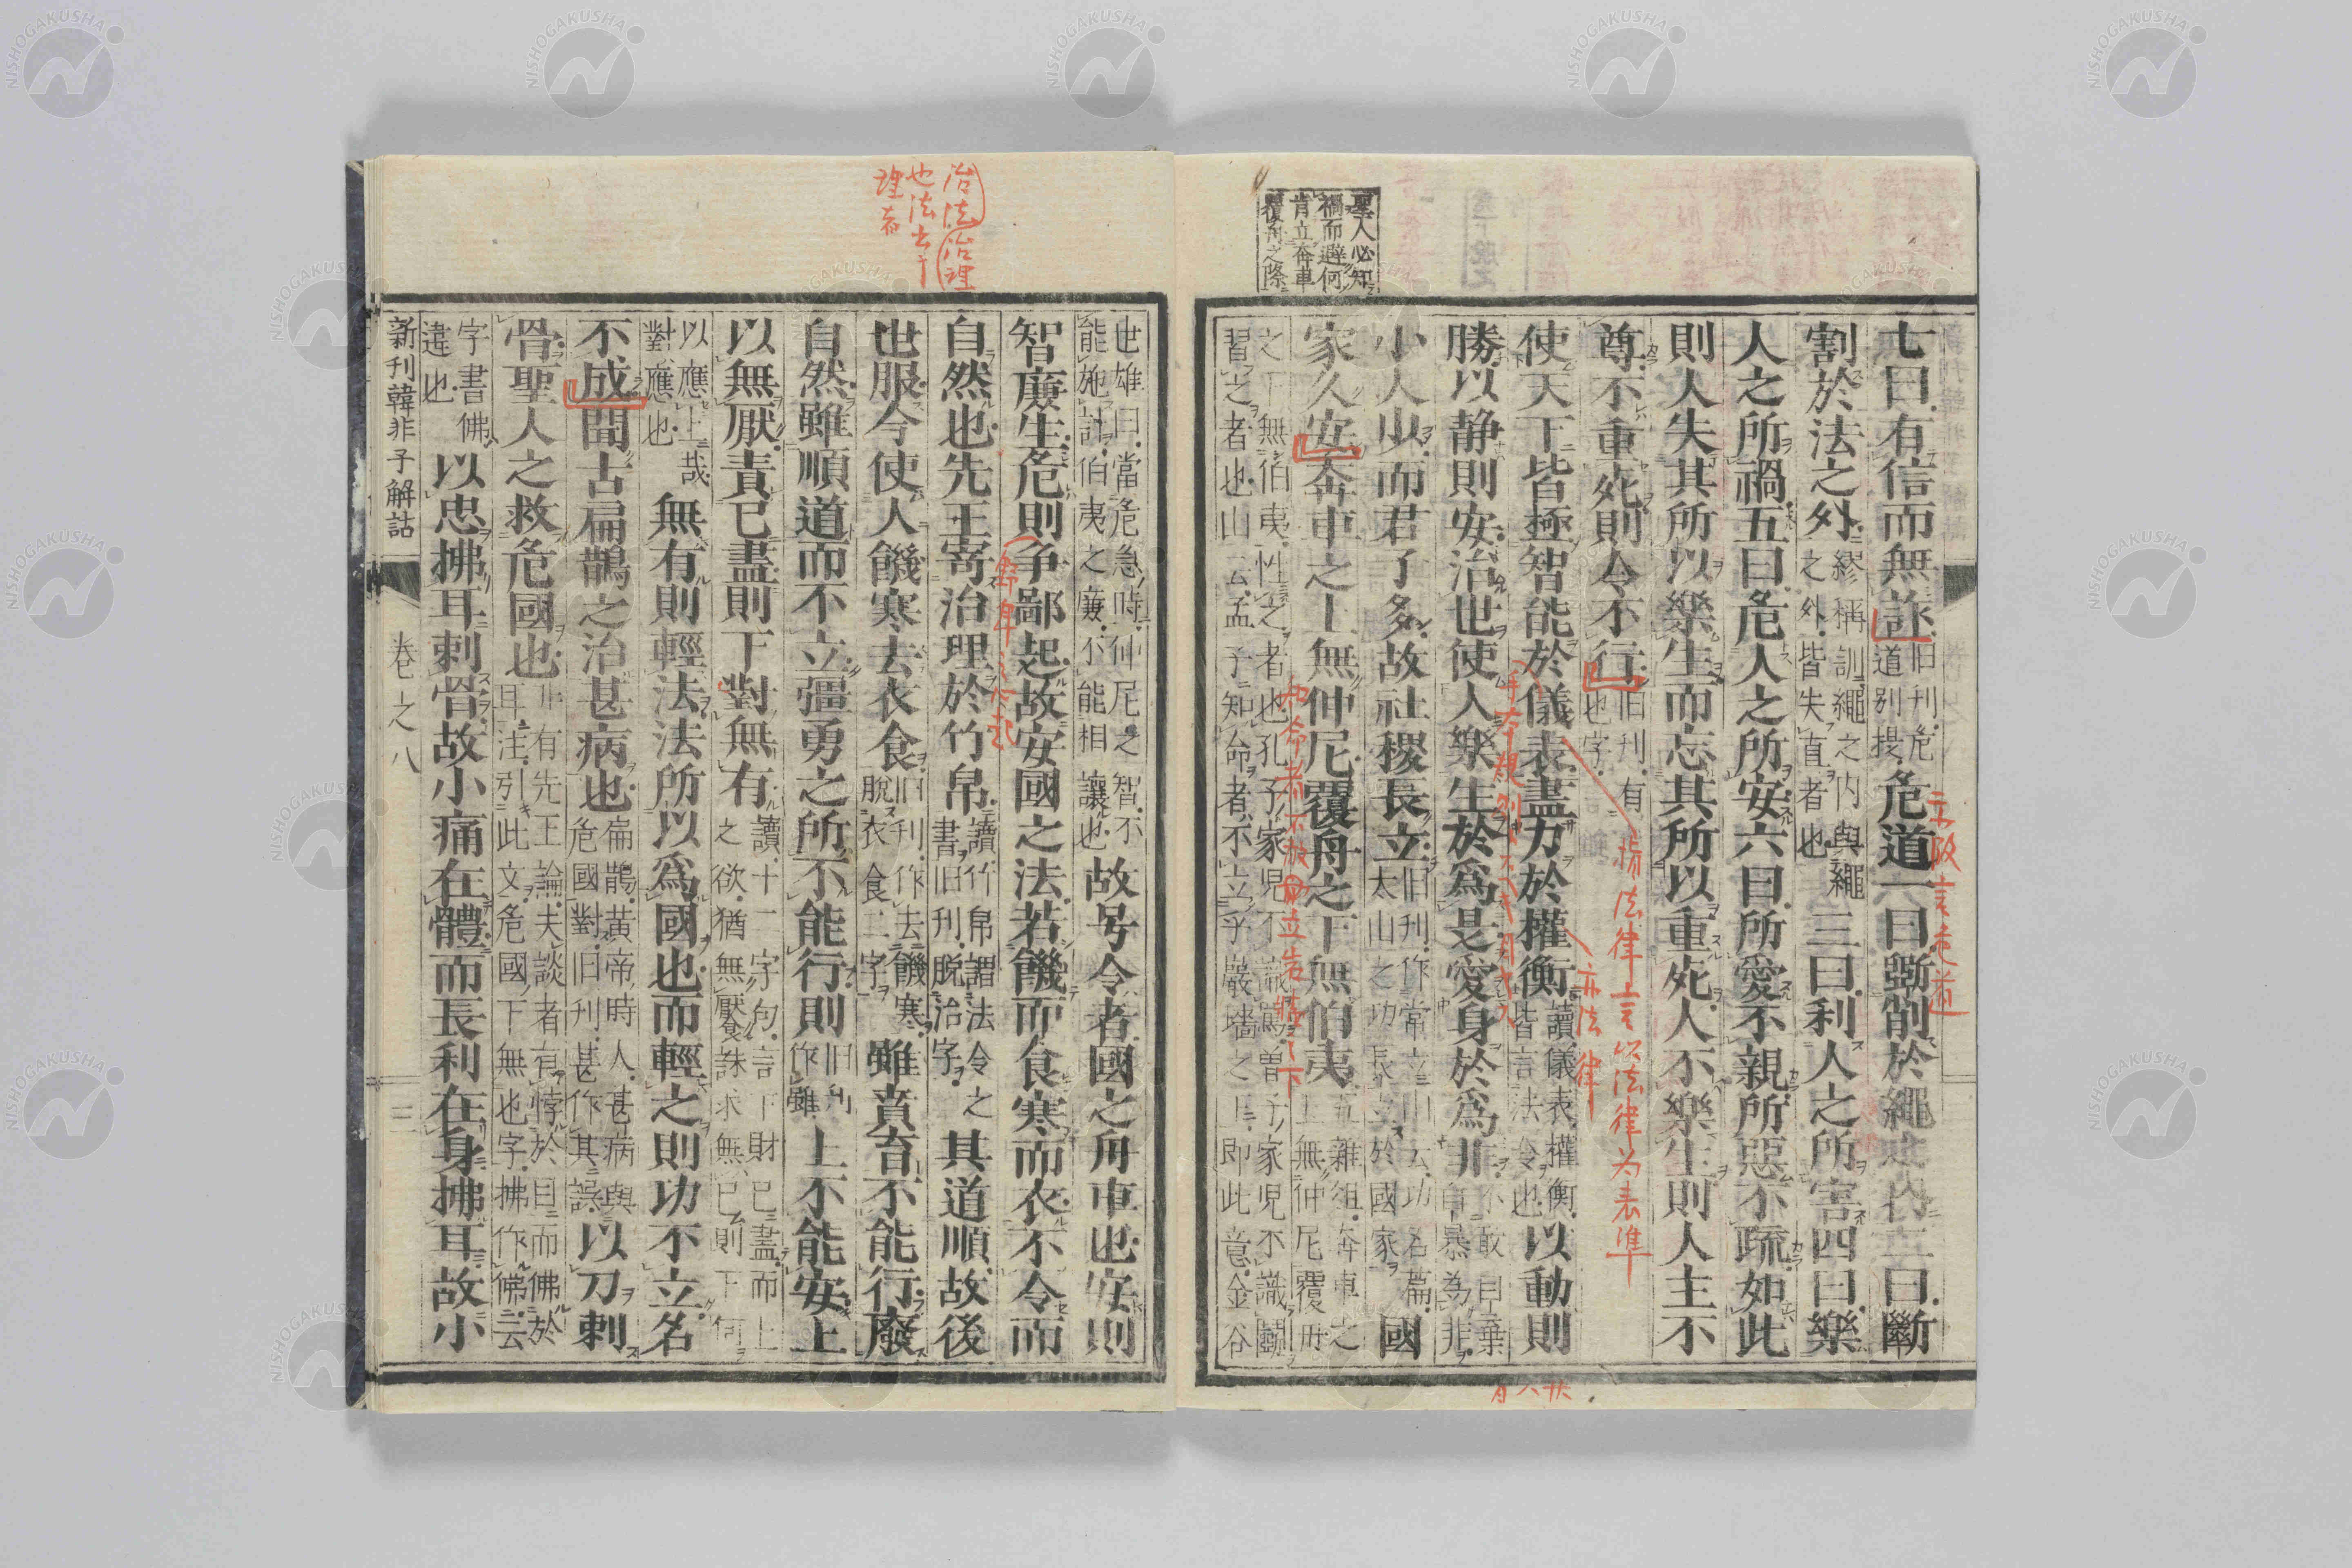 聖人必知
禍而避何
肯立奔車
覆舟之際
七曰有信而無詐 旧刊危道別提 危道一曰斵削於繩之內二曰斷
割於法之外 繆稱訓繩之內與繩之外皆失直者也 三曰利人之所害四曰樂
人之所禍五曰危人之所安六曰所愛不親所惡不疏如此
則人失其所以樂生而忘其所以重死人不樂生則人主不
尊不重死則令不行 旧刊有也字
使天下皆極智能於儀表盡力於權衡 讀儀表權衡皆言法令也 以動則
勝以静則安治世使人樂生於爲是愛身於爲非
小人少而君子多故社稷長立 旧刊作常立山云功名篇太山之功長立於國家 國
家久安奔車之上無仲尼覆舟之下無伯夷 五雜組奔車之上無仲尼覆舟
之下無伯夷性之者也孔子家兒不識罵曾子家兒不識鬬
習之者也山云孟子知命者不立乎嚴墻之下即此意金谷
世雄曰當危急時仲尼之智不
能施計伯夷之廉不能相讓也 故号令者國之舟車也安則
智廉生危則争鄙起故安國之法若饑而食寒而衣不令而
自然也先王寄治理於竹帛 讀竹帛謂法令之書旧刊脫治字 其道順故後
世服今使人饑寒去衣食 旧刊作去饑寒脫衣食二字 雖賁育不能行廢
自然雖順道而不立彊勇之所不能行則 旧刊作雖 上不能安上
以無厭責已盡則下對無有 讀十一字句言下財已盡而上之欲猶無厭食誅求無已則下何
以應上哉
對應也 無有則輕法法所以爲國也而輕之則功不立名
不成聞古扁鵲之治甚病也 崙鵲黃帝時人甚病與危國對旧刊甚作其誤 以刀刺
骨聖人之救危國也 非有先王論夫談者有悖於目而佛於耳注引此文危國下無也字拂作佛云
字書佛
違也 以忠拂耳刺骨故小痛在體而長利在身拂耳故小
新刊韓非子解詁
卷之八
三
治法治理
也法
理者
指法律言以法律为表準
亦法律